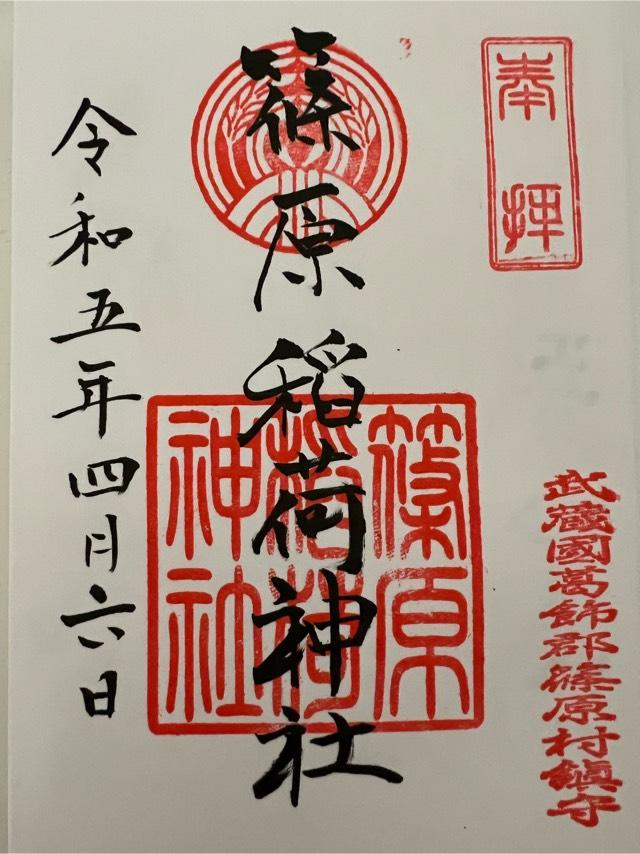 奉拝
武蔵國葛飾郡篠原村鎮守
篠原稲荷神社
篠原
稲荷
神社
令和五年四月六日